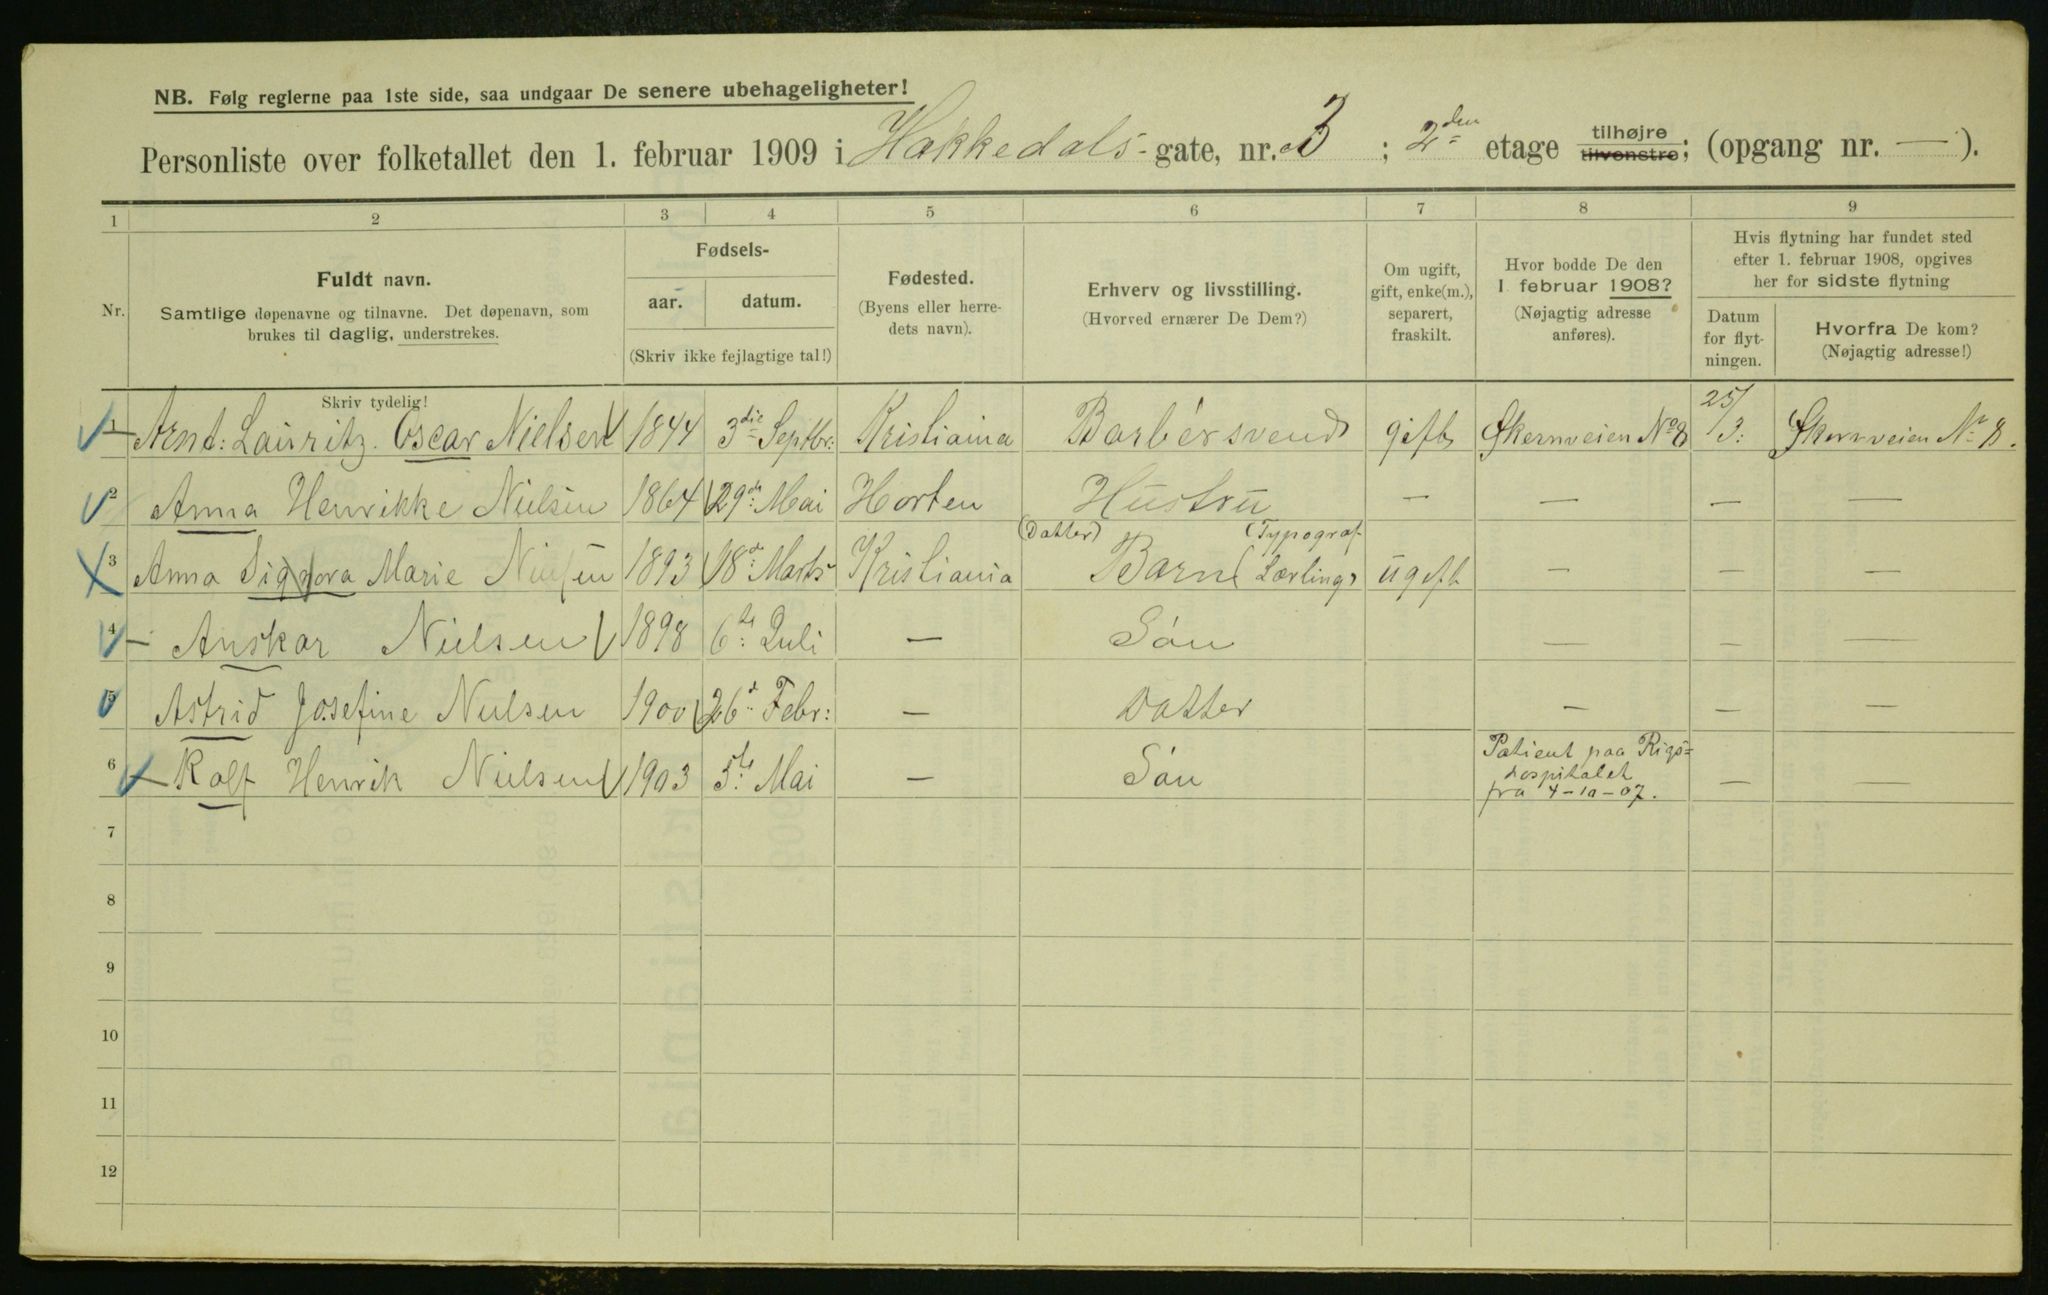 NB. Følg reglerne paa 1ste side, saa undgaar De senere ubehageligheter!
Personliste over folketallet den 1. februar 1909 i Hakkedals-gate, nr. 3; 2den etage tilhøjre tilvenstre; (opgang nr. —).
1 2 3 4 5 6 7 8 9
Nr.
Fuldt navn.
Samtlige døpenavne og tilnavne. Det døpenavn, som
brukes til daglig, understrekes.
Fødsels-
aar. datum.
(Skriv ikke fejlagtige tal!)
Fødested.
(Byens eller herre-
dets navn).
Erhverv og livsstilling.
(Hvorved ernærer De Dem?)
Om ugift,
gift, enke(m.),
separert,
fraskilt.
Hvor bodde De den
1. februar 1908?
(Nøjagtig adresse
anføres).
Hvis flytning har fundet sted
efter 1. februar 1908, opgives
her for sidste flytning
Datum
for flyt-
ningen.
Hvorfra De kom?
(Nøjagtig adresse!)
Skriv tydelig!
1 Arnt: Lauritz. Oscar Nielsen 1844 3die Septbr: Kristiania Barbérsvend gift Økernveien No 8 25/3: Økernveien Nr 8.
2 Anna Henrikke Nielsen 1864 29de Mai Horten Hustru — — — —
(Datter) (Typograf
3 Anna Signora Marie Nielsen 1893 18d Marts Kristiania Barn Lærling) ugift — — —
4 Anskar Nielsen 1898 6te Juli — Søn — — —
5 Astrid Josefine Nielsen 1900 26d Febr: — Datter — — —
6 Rolf Henrik Nielsen 1903 5te Mai — Søn Patient paa Rigs=
hospitalet
fra 4-10-07. — —
7
8
9
10
11
12